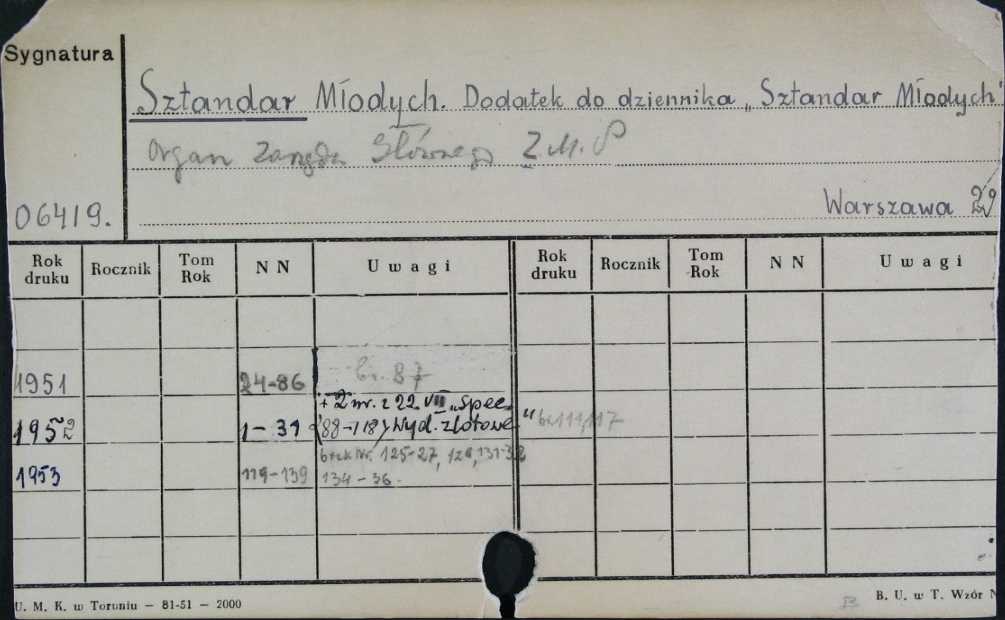 Sygnatura
Sztandar Młodych. Dodatek do dziennika „Sztandar Młodych"
Organ Zarządu Głównego Z.M.P
06419.
Warszawa
Rok druku Rocznik Tom Rok NN Uwagi Rok druku Rocznik Tom Rok NN Uwagi
1951 24-86 br. 87
+ 2 nr. z 22.VII „Spec.
1952 1-31 (88-118) Wyd. zlotowe" br 111, 117
brak Nr. 125-27, 129, 131-32
1953 119-139 134-36.
U. M. K. w Toruniu — 81-51 — 2000
B. U. w T. Wzór N